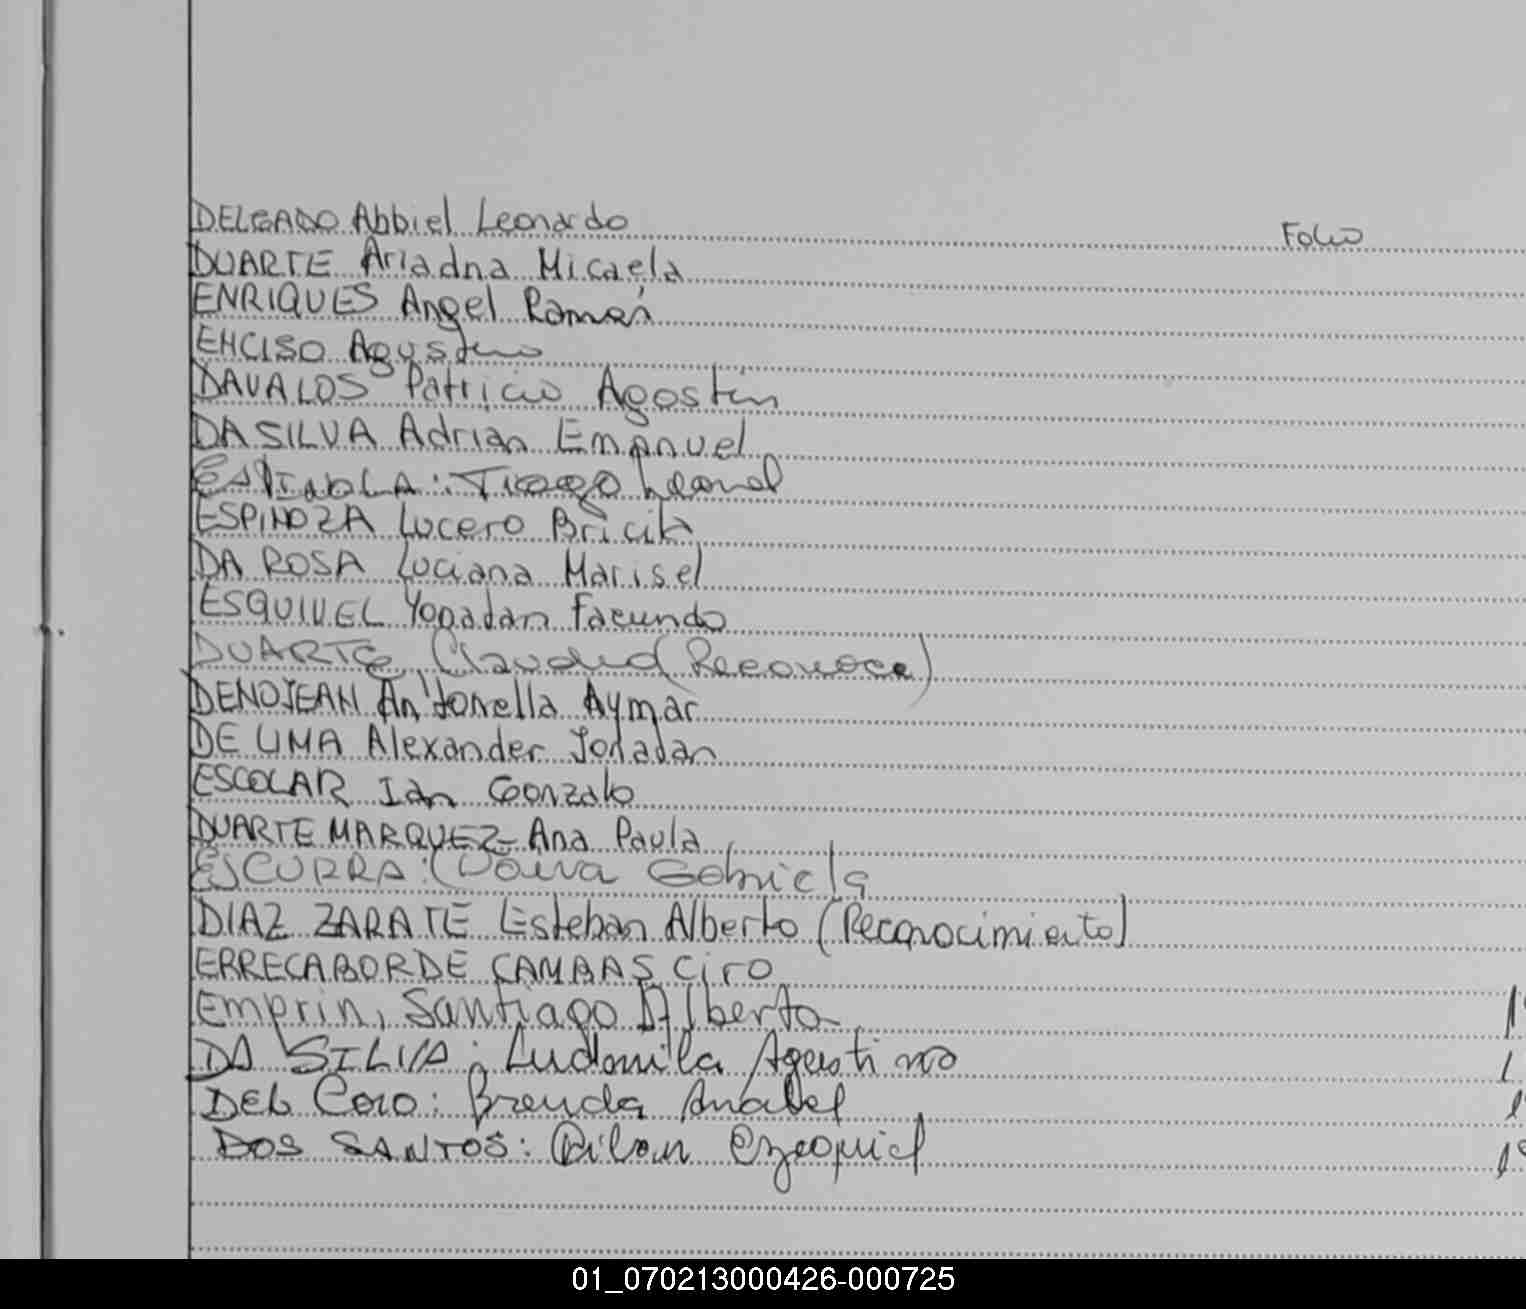 DELGADO Abbiel Leonardo Folio
DUARTE Ariadna Micaela
ENRIQUES Angel Ramón
ENCISO Agustino
DAVALOS Patricio Agostin
DA SILVA Adrian Emanuel
Tiago Leonel
ESPINOZA Lucero Bricit
DA ROSA Luciana Marisel
ESQUIVEL Yonadan Facundo
DUARTE Claudio (Reconoce)
DENOJEAN Antonella Aymar
DE LIMA Alexander Jonadan
ESCOLAR Ian Gonzalo
DUARTE MARQUEZ- Ana Paula
ESCURRA: Gabriela
DIAZ ZARATE Esteban Alberto (Reconocimiento)
ERRECABORDE CAMBAS Ciro
Emprin, Santiago Alberto
DA SILVA: Ludmila Agustina
DEL Coro: Brenda Anabel
DOS SANTOS: Dilan Ezequiel
01_070213000426-000725